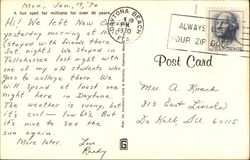 Mon, Jan, 19, 70
A fun spot for millions for over 40 years
Hi! We left New
yesterday morning at
(stayed with friends there
last night). We stayed in
Tallahassee last night with
one of my old students who
goes to college there. We
will spend at least one
night here in Daytona.
The weather is sunny, but
it's cool — low 60's. But
it's nice to see the
sun again.
More later. Love
DAYTONA BEACH
PM
1970
ALWAYS
YOUR ZIP
Post Card
Mrs. A.
East Lincoln
De Kalb, Ill 60115